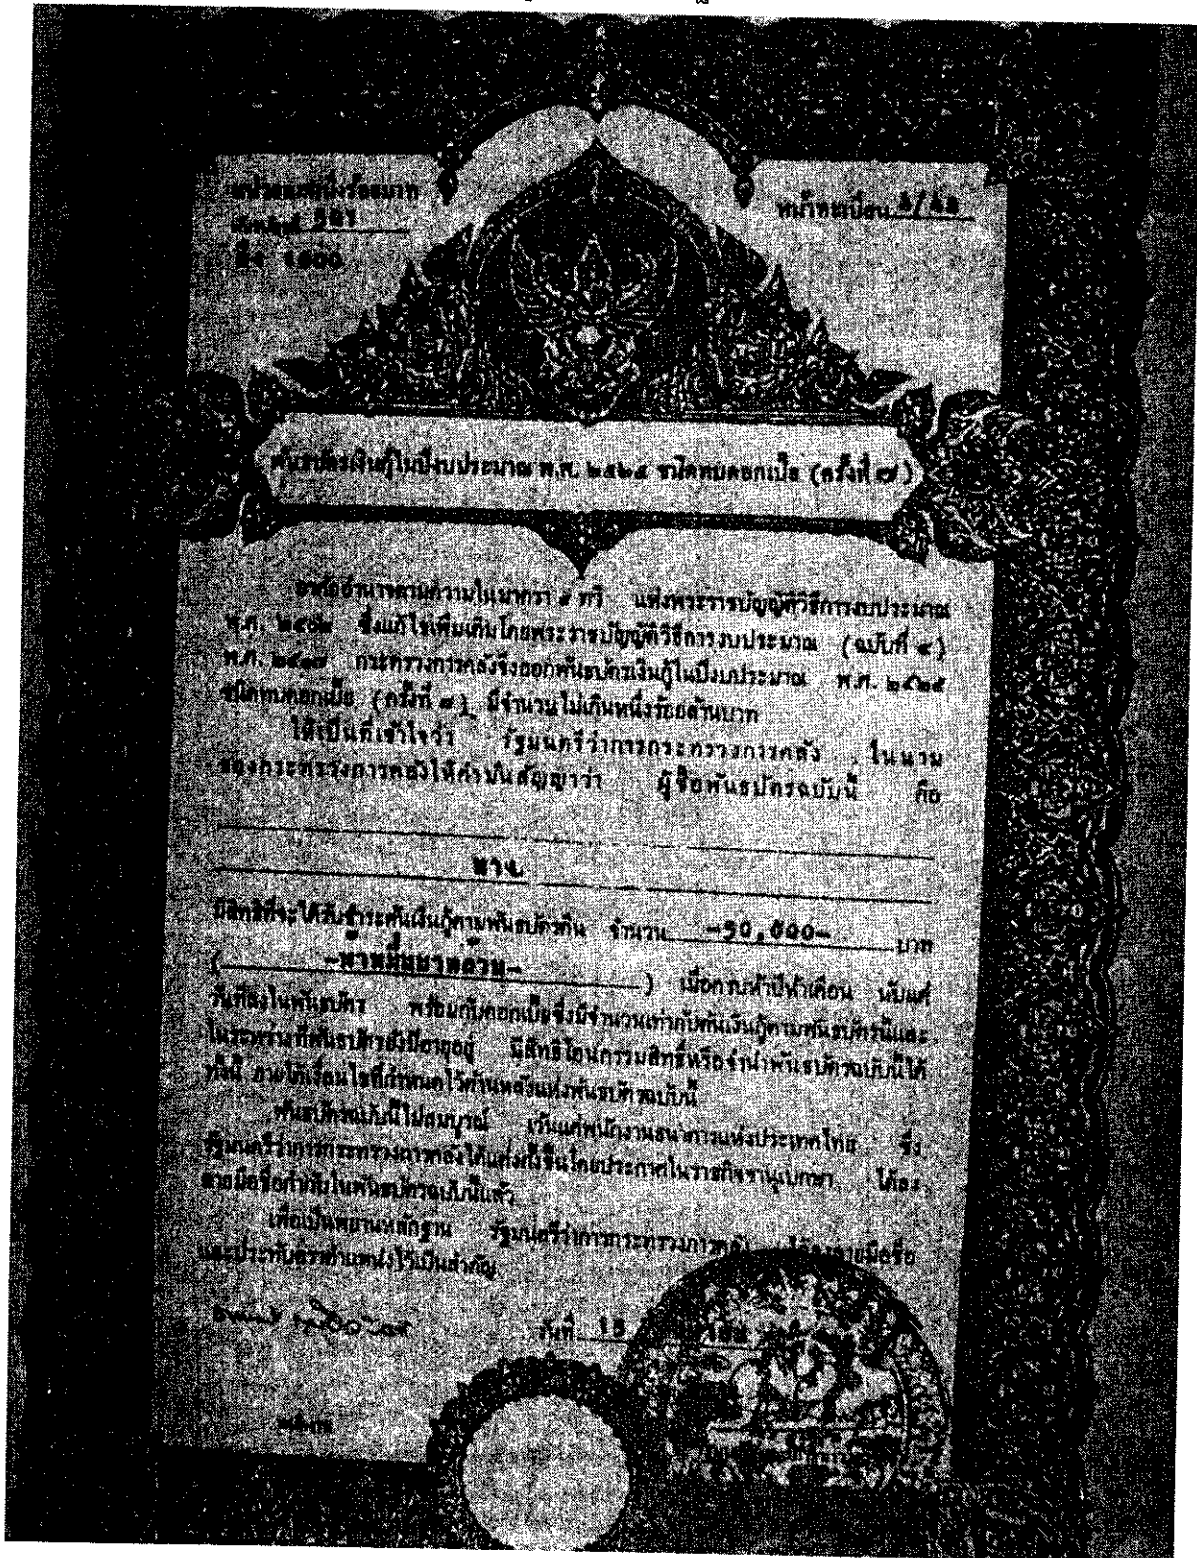 หน้าทะเบียน
พันธบัตรเงินกู้ในปีงบประมาณ พ.ศ. ๒๕๒๕ ชนิดทบดอกเบี้ย (ครั้งที่ ๗)
อาศัยอำนาจตามความในมาตรา ๙ ทวิ แห่งพระราชบัญญัติวิธีการงบประมาณ
พ.ศ. ๒๕๐๒ ซึ่งแก้ไขเพิ่มเติมโดยพระราชบัญญัติวิธีการงบประมาณ (ฉบับที่ ๔)
พ.ศ. ๒๕๑๗ กระทรวงการคลังจึงออกพันธบัตรเงินกู้ในปีงบประมาณ พ.ศ. ๒๕๒๕
ชนิดทบดอกเบี้ย (ครั้งที่ ๗) มีจำนวนไม่เกินหนึ่งร้อยล้านบาท
ให้เป็นที่เข้าใจว่า รัฐมนตรีว่าการกระทรวงการคลัง ในนาม
ของกระทรวงการคลังให้คำมั่นสัญญาว่า ผู้ซื้อพันธบัตรฉบับนี้ คือ
มีสิทธิที่จะได้รับชำระต้นเงินกู้ตามพันธบัตรคืน จำนวน -50,000- บาท
(-ห้าหมื่นบาทถ้วน-) เมื่อครบห้าปีห้าเดือน นับแต่
วันที่ลงในพันธบัตร พร้อมกับดอกเบี้ยซึ่งมีจำนวนเท่ากับต้นเงินกู้ตามพันธบัตรนี้และ
ในระหว่างที่พันธบัตรยังมีอายุอยู่ มีสิทธิโอนกรรมสิทธิ์หรือจำนำพันธบัตรฉบับนี้ได้
ทั้งนี้ ภายใต้เงื่อนไขที่กำหนดไว้ด้านหลังแห่งพันธบัตรฉบับนี้
พันธบัตรฉบับนี้ไม่สมบูรณ์ เว้นแต่พนักงานธนาคารแห่งประเทศไทย ซึ่ง
รัฐมนตรีว่าการกระทรวงการคลังได้แต่งตั้งขึ้นโดยประกาศในราชกิจจานุเบกษา ได้ลง
ลายมือชื่อกำกับในพันธบัตรฉบับนี้แล้ว
เพื่อเป็นพยานหลักฐาน รัฐมนตรีว่าการกระทรวงการคลัง ได้ลงลายมือชื่อ
และประทับตราตำแหน่งไว้เป็นสำคัญ
วันที่ 15